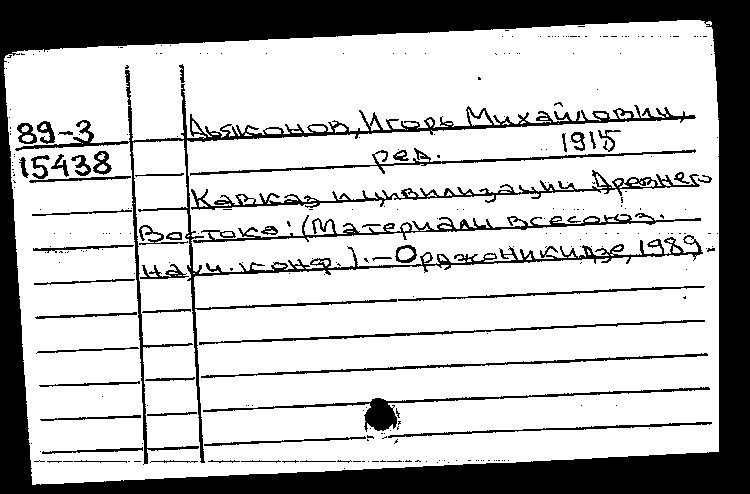 89-3
Дьяконов, Игорь Михайлович,
15438
ред. 1915
Кавказ и цивилизации Древнего
Востока: (Материалы всесоюз.
науч. конф.). — Орджоникидзе, 1989.